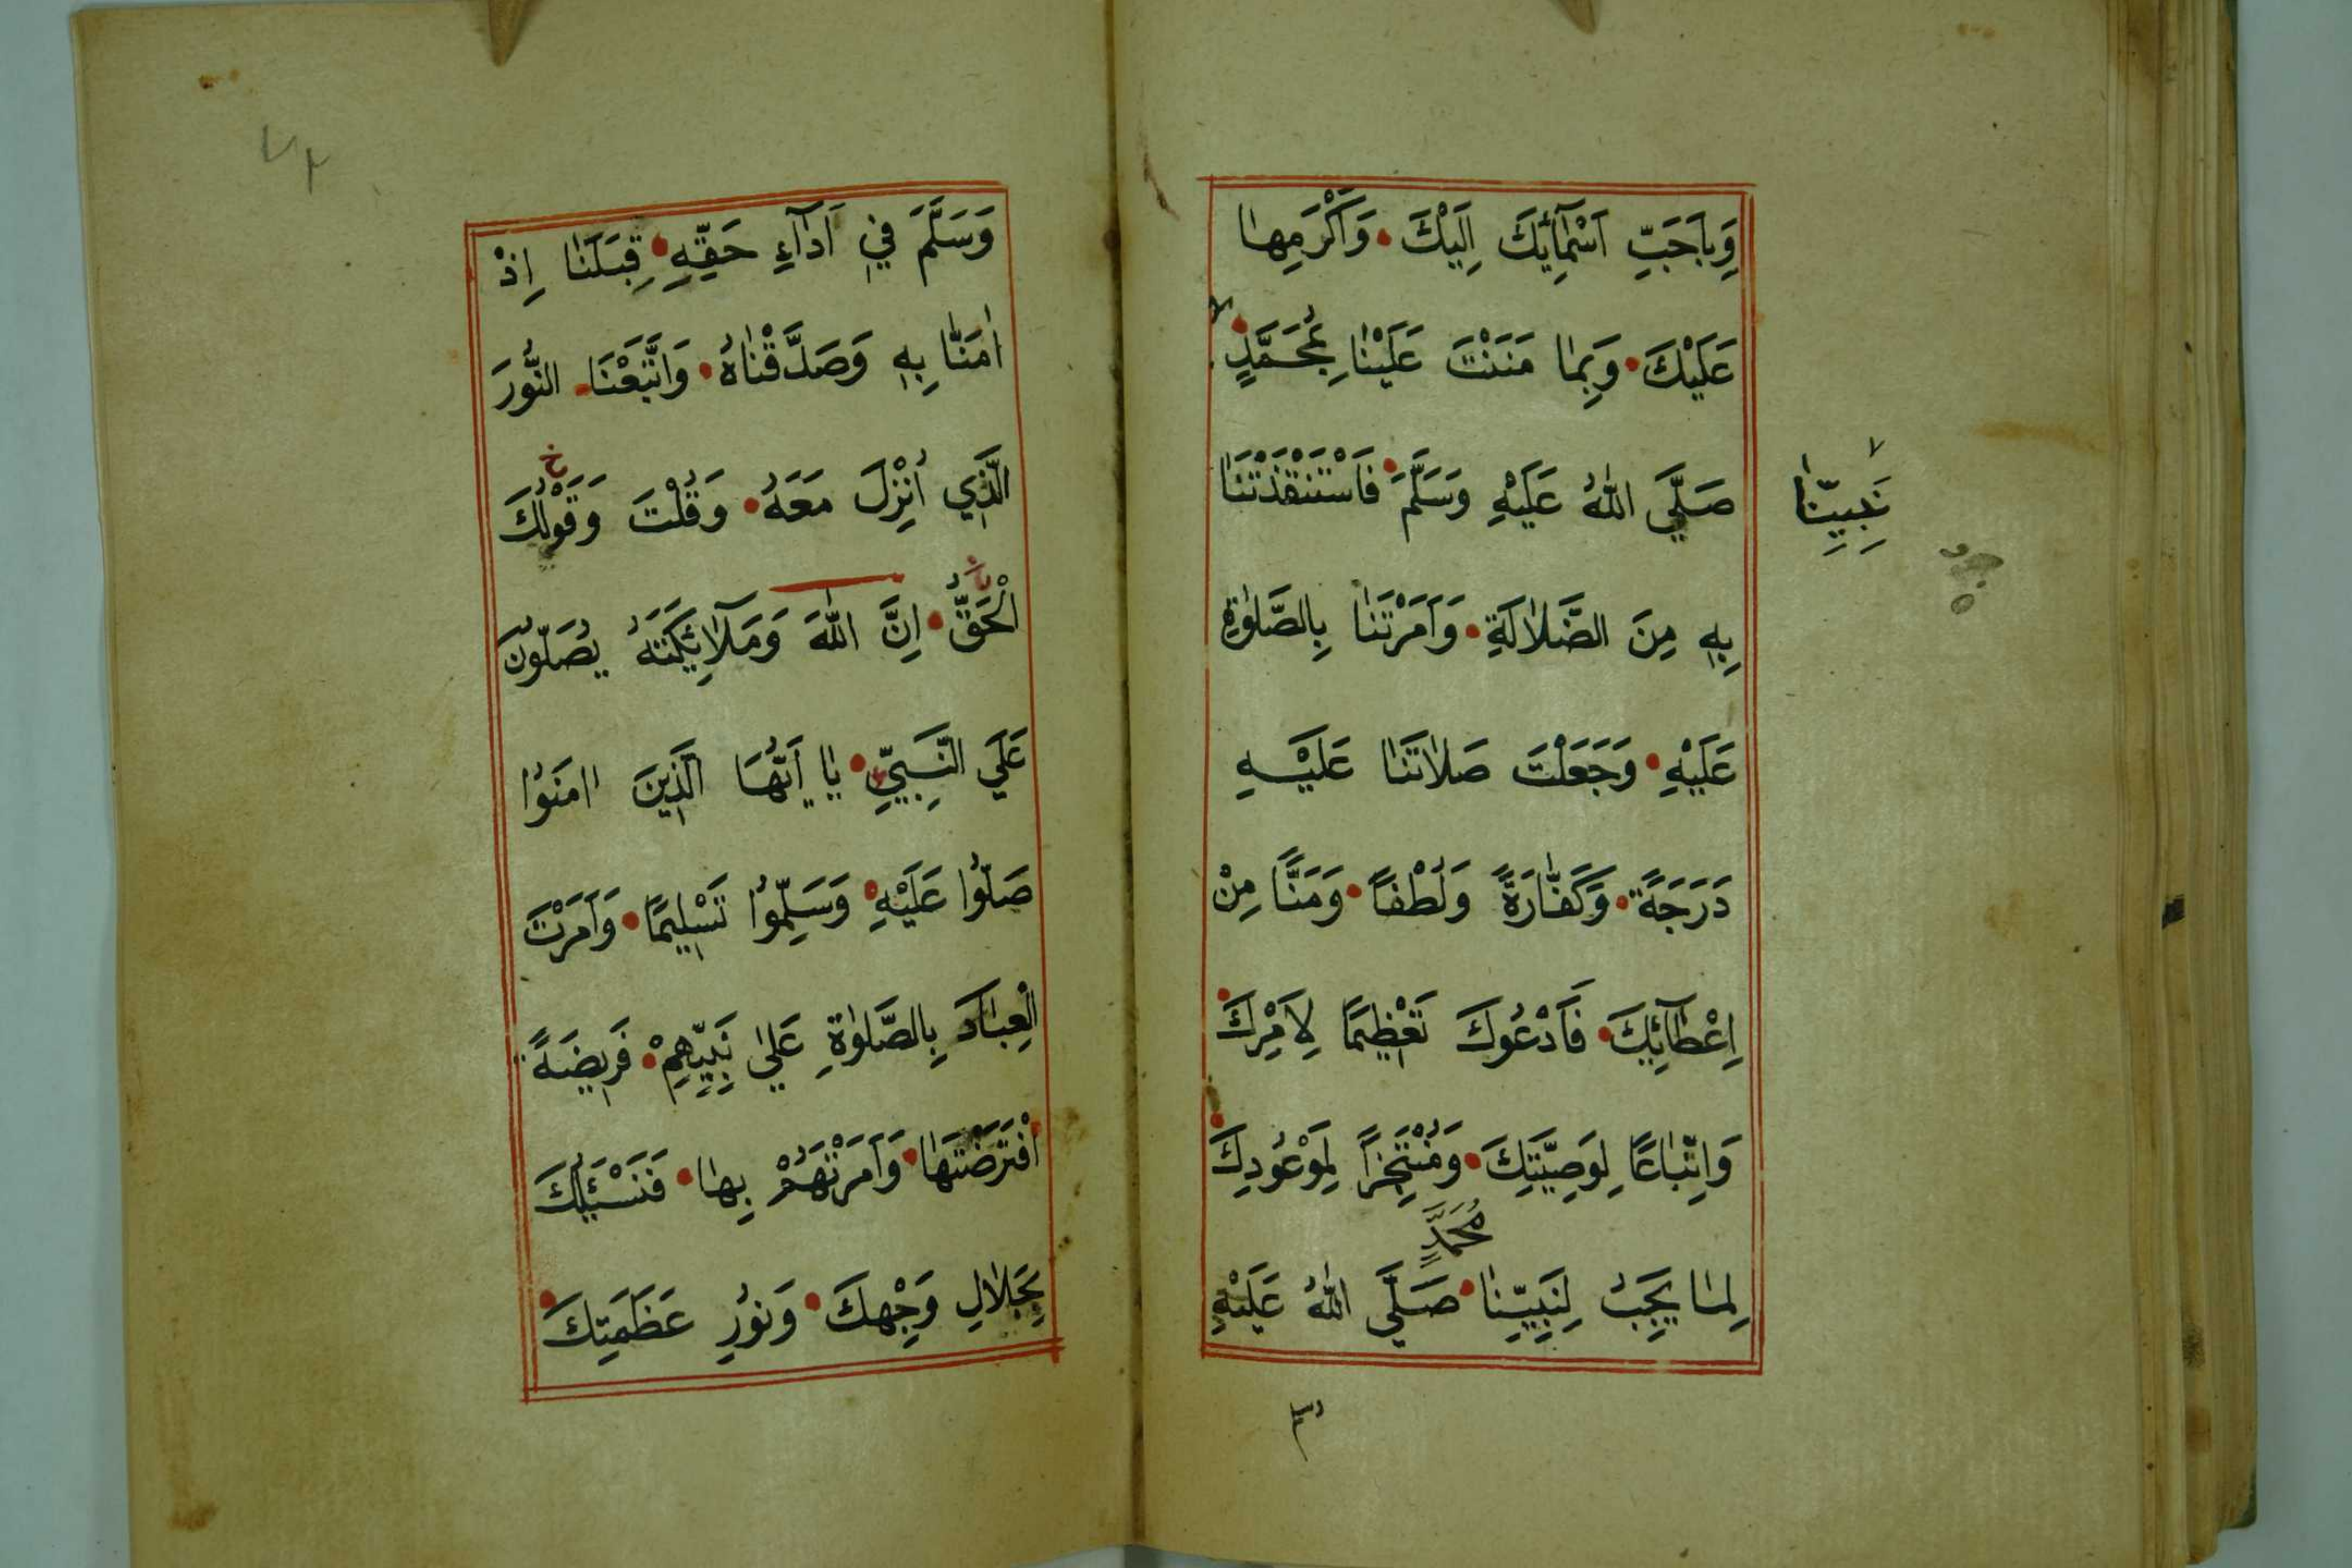 وَبِاَحَبِّ اَسْمَآئِكَ اِلَيْكَ وَاَكْرَمِهَا
عَلَيْكَ وَبِمَا مَنَنْتَ عَلَيْنَا بِمُحَمَّدٍ
نَبِيِّنَا
صَلَّي اللهُ عَلَيْهِ وَسَلَّمَ فَاَسْتَنْقَذْتَنَا
بِهِ مِنَ الضَّلَالَةِ وَاَمَرْتَنَا بِالصَّلٰوةِ
عَلَيْهِ وَجَعَلْتَ صَلَاتَنَا عَلَيْهِ
دَرَجَةً وَكَفَّارَةً وَلُطْفاً وَمَنًّا مِنْ
اِعْطَآئِكَ فَاَدْعُوكَ تَعْظِيمًا لِاَمْرِكَ
وَاِتِّبَاعًا لِوَصِيَّتِكَ وَمُنْتَجِزاً لِمَوْعُودِكَ
مُحَمَّدٍ
لِمَا يَجِبُ لِنَبِيِّنَا صَلَّي اللهُ عَلَيْهِ
وَسَلَّمَ فِي اَدَآءِ حَقِّهِ قِبَلَنَا اِذْ
اٰمَنَّا بِهِ وَصَدَّقْنَاهُ وَاتَّبَعْنَا النُّورَ
الَّذِي اُنْزِلَ مَعَهُ وَقُلْتَ وَقَوْلُكَ
خ
الْحَقُّ اِنَّ اللهَ وَمَلَآئِكَتَهُ يُصَلُّونَ
عَلَي النَّبِيِّ يَا اَيُّهَا الَّذِينَ اٰمَنُوا
صَلُّوا عَلَيْهِ وَسَلِّمُوا تَسْلِيمًا وَاَمَرْتَ
الْعِبَادَ بِالصَّلٰوةِ عَلٰي نَبِيِّهِمْ فَرِيضَةً
افْتَرَضْتَهَا وَاَمَرْتَهُمْ بِهَا فَنَسْئَلُكَ
بِجَلَالِ وَجْهِكَ وَنُورِ عَظَمَتِكَ